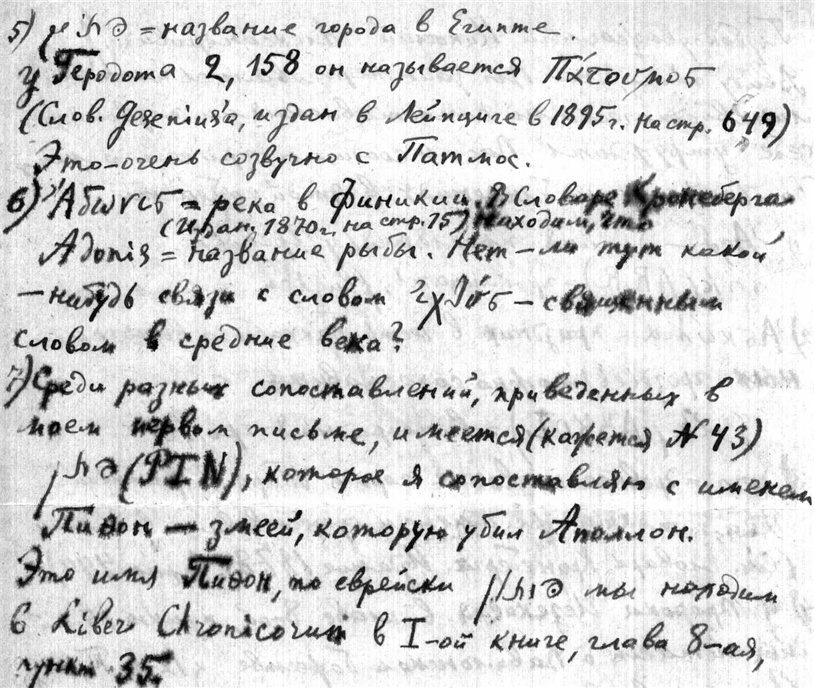 5) = название города в Египте.
у Геродота 2, 158 он называется Πάτουμος
(Слов. Gesenius'а, издан в Лейпциге в 1895 г. на стр. 649)
Это – очень созвучно с Патмос.
6) Ἄδωνις = река в Финикии. В словаре Кронеберга
(издан. 1870 г., на стр. 15) находим, что
Adonis = название рыбы. Нет – ли тут какой
– нибудь связи с словом ἰχθύς – священным
словом в средние века?
7) Среди разных сопоставлений, приведенных в
моем первом письме, имеется (кажется № 43)
פתן (PIN), которое я сопоставляю с именем
Пидон — змеей, которую убил Аполлон.
Это имя Пидон, по еврейски פיתון мы находим
в Liber Chronicorum в I-ой книге, глава 8-ая,
пункт 35.